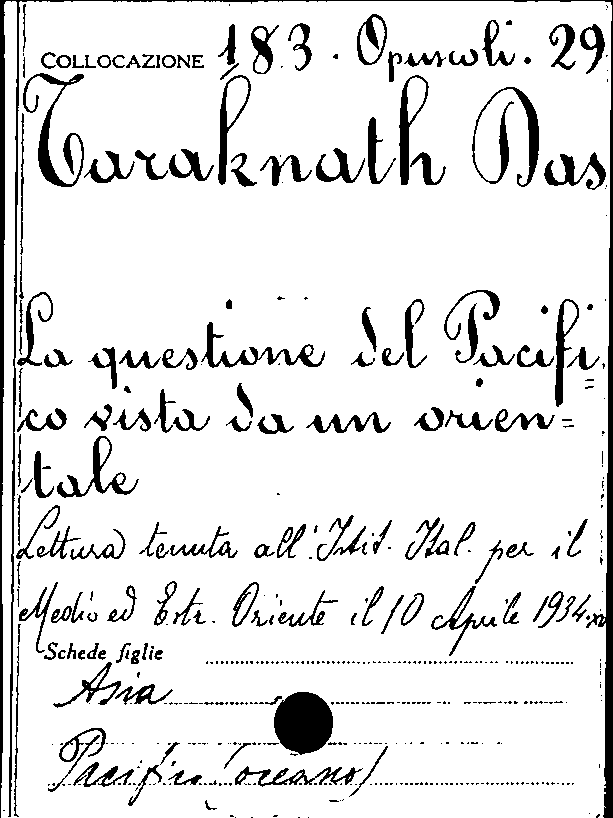 COLLOCAZIONE 183. Opuscoli. 29
Taraknath Das
La questione del Pacifi=
co vista da un orien=
tale
Lettura tenuta all'Istit. Ital. per il
Medio ed Estr. Oriente il 10 Aprile 1934.XII
Schede figlie
Asia
Pacifico (oceano)